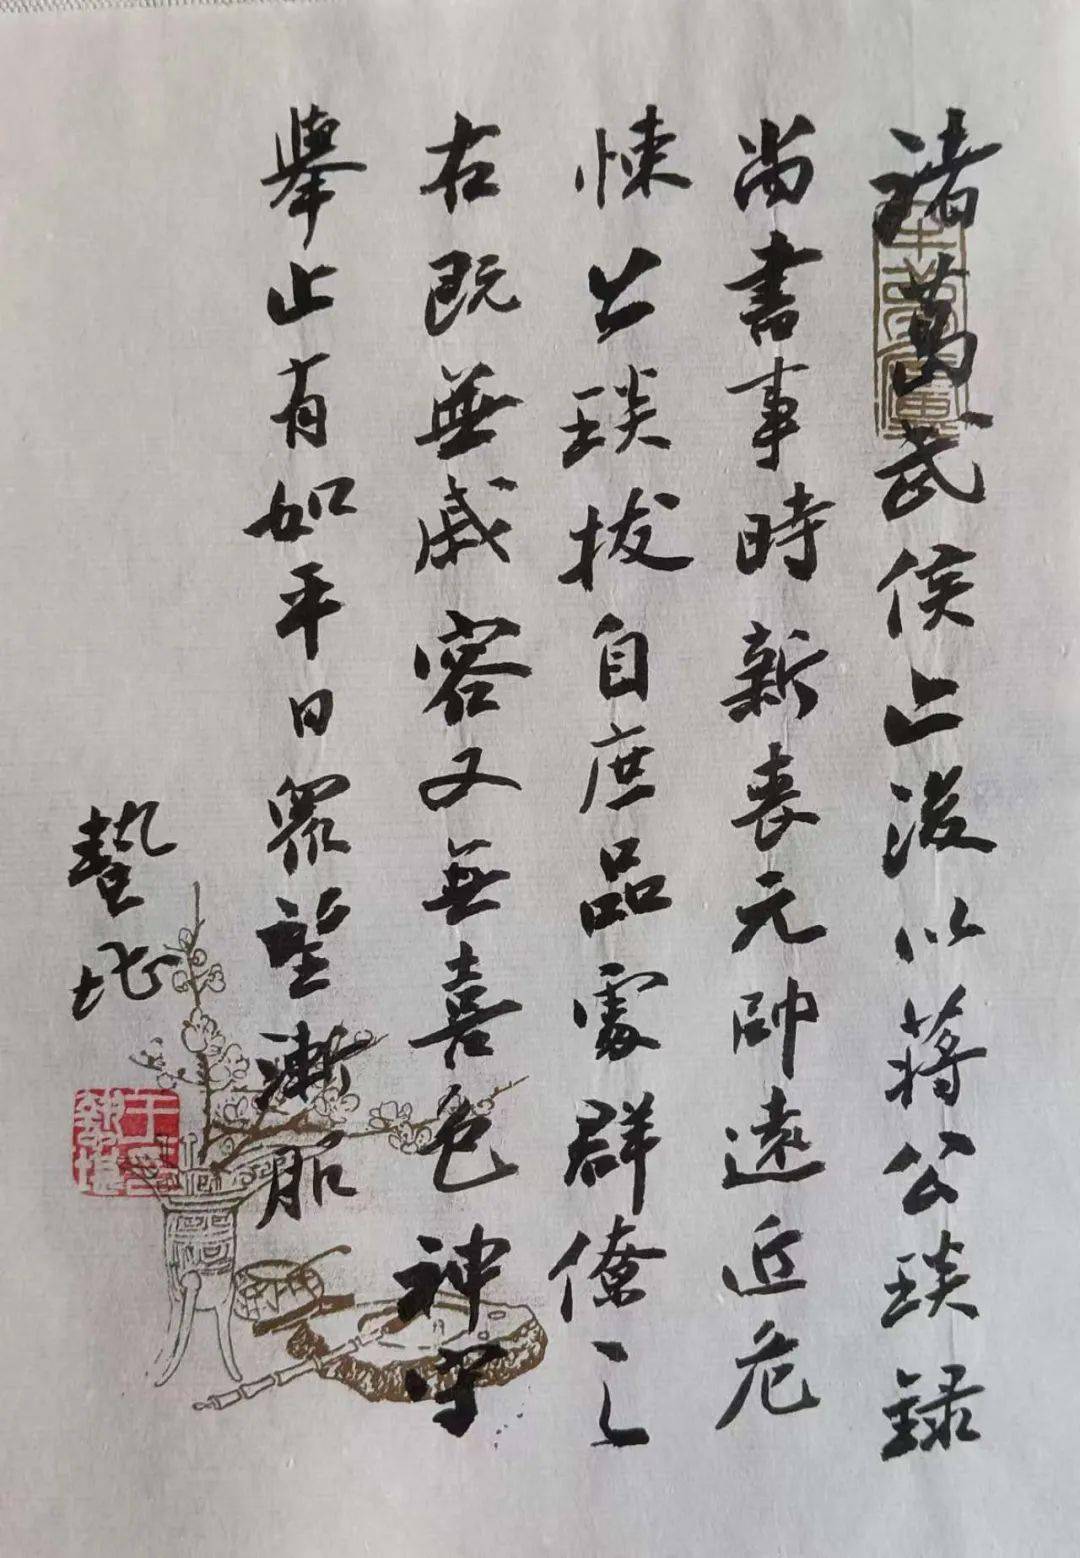 諸葛武侯亡後以蔣公琰錄
尚書事時新喪元帥遠近危
悚公琰拔自庶品處群僚之
右既無戚容又無喜色神守
舉止有如平日眾望漸服